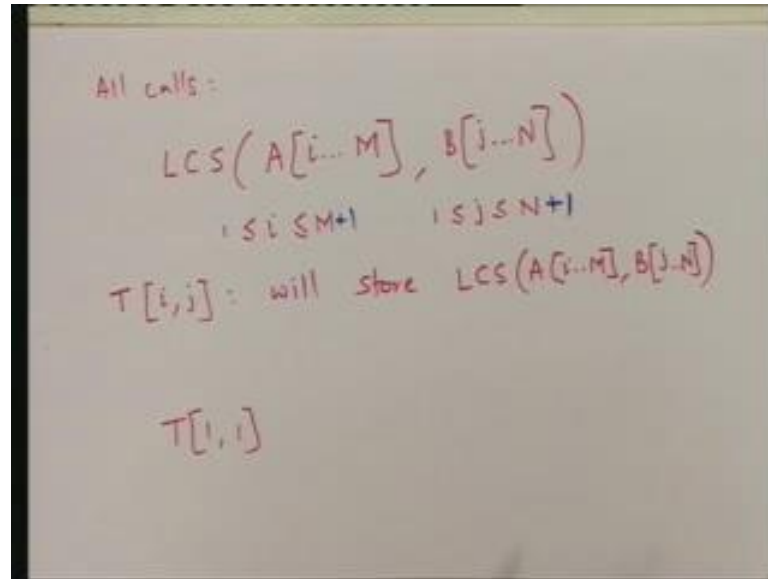 All calls:
LCS(A[i...M], B[j...N])
1 ≤ i ≤ M+1 1 ≤ j ≤ N+1
T[i,j]: will store LCS(A[i..M], B[j..N])
T[1,1]